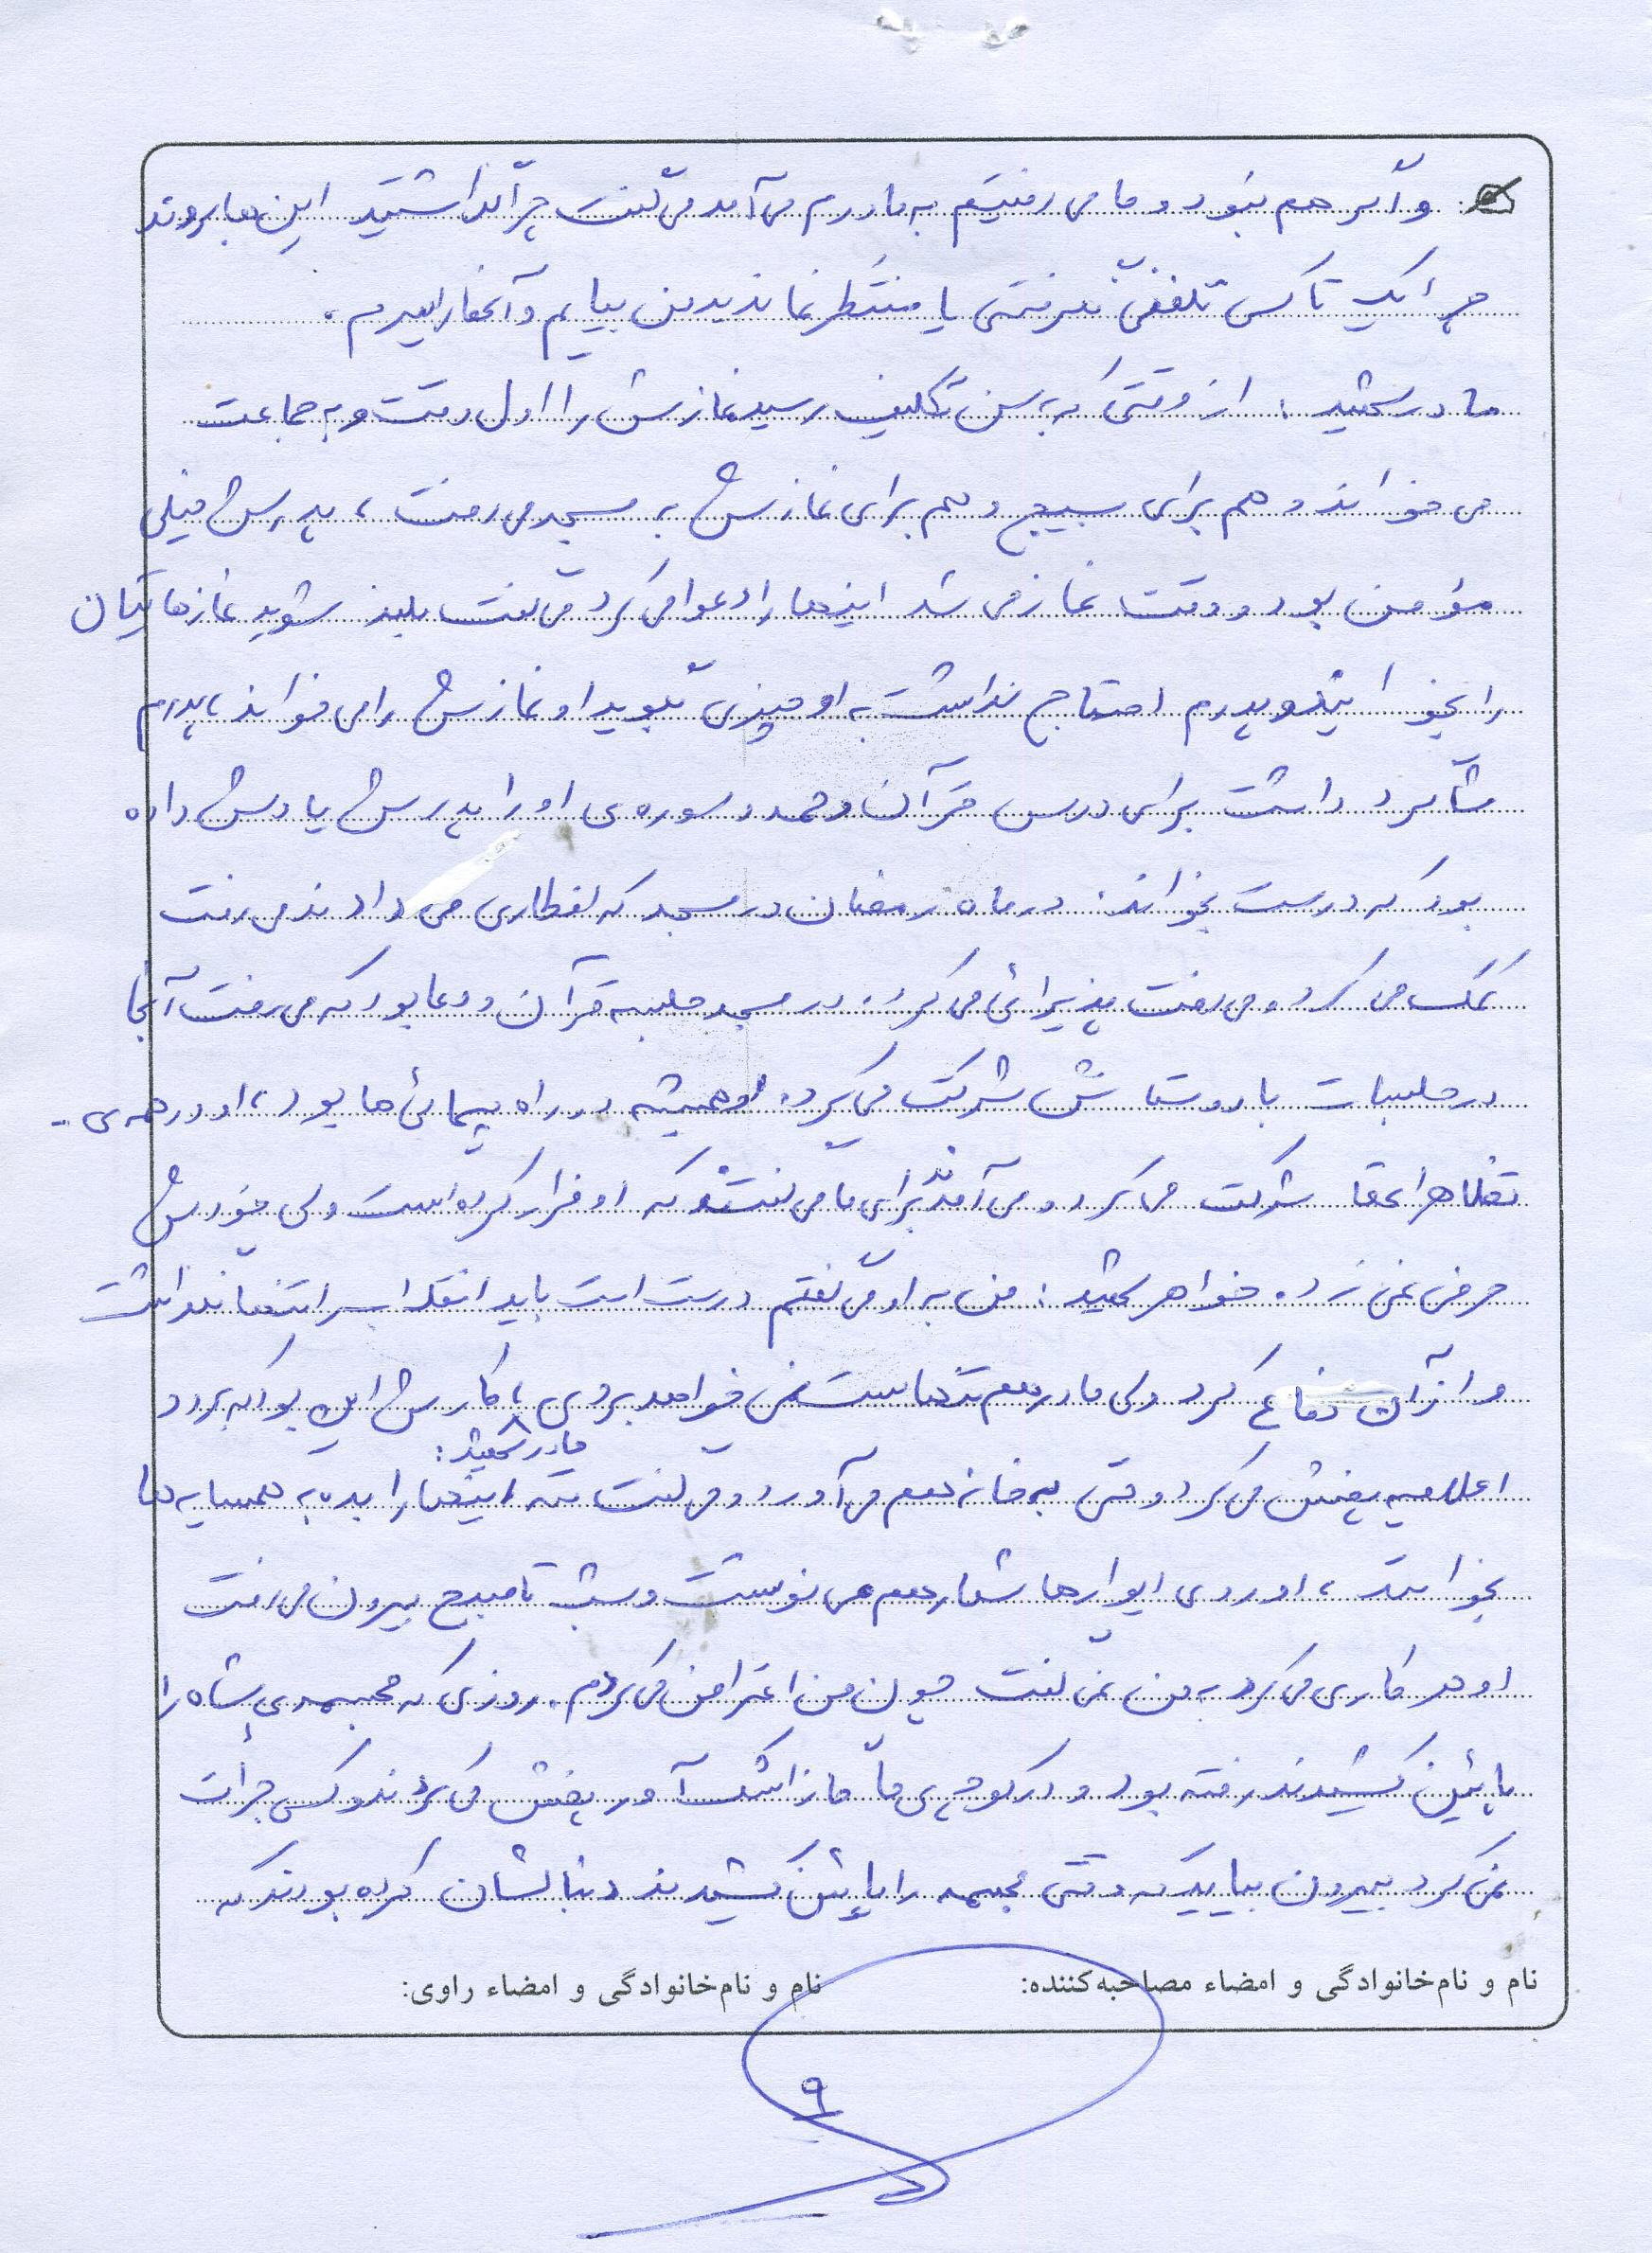 و اگر هم نبود و ما می رفتیم به مادرم می آمد می گفت چرا گذاشتید این ها بروند
چرا یک تاکسی تلفنی نگرفتی یا منتظر نماندید من بیایم و آنها را ببرم .
مادر شهید : از وقتی که به سن تکلیف رسید نمازش را اول وقت و به جماعت
می خواند و هم برای بسیج و هم برای نمازش به مسجد می رفت ، پدرش خیلی
مؤمن بود و وقت نماز می شد اینها را دعوا می کرد می گفت بلند شوید نمازهایتان
را بخوانید و پدرم احتیاج نداشت به او چیزی بگوید او نمازش را می خواند ، پدرم
شاگرد داشت برای درس قرآن و حمد و سوره ی او را پدرش یادش داده
بود که درست بخواند . در ماه رمضان در مسجد که افطاری می دادند می رفت
کمک می کرد و می رفت پذیرائی می کرد . در مسجد جلسه قرآن و دعا بود که می رفت آنجا
در جلسات با دوستاش شرکت می کرد . او همیشه در راه پیمائی ها بود ، او در همه ی -
تظاهراتها شرکت می کرد و می آمدند برای ما می گفتند که او فرار کرده است ولی خودش
حرفی نمی زد . خواهر شهید : من به او می گفتم درست است باید انقلاب را تنها نگذاشت
و از آن دفاع کرد ولی مادرم هم تنهاست نمی خواهد بروی ، کارش این بود که برود
مادر شهید :
اعلامیه پخش می کرد وقتی به خانه هم می آورد و می گفت ننه اینها را بده به همسایه ها
بخوانند ، او روی دیوارها شعار هم می نوشت و شب تا صبح بیرون می رفت
او هر کاری می کرد به من نمی گفت چون من اعتراض می کردم . روزی که مجسمه ی شاه را
پائین کشیدند رفته بود و در کوچه ی ما گاز اشک آور پخش می کردند و کسی جرأت
نمی کرد بیرون بیاید که وقتی مجسمه را پائین کشیدند دنبالشان کرده بودند که
نام و نام‌خانوادگی و امضاء مصاحبه‌کننده: نام و نام‌خانوادگی و امضاء راوی:
۹